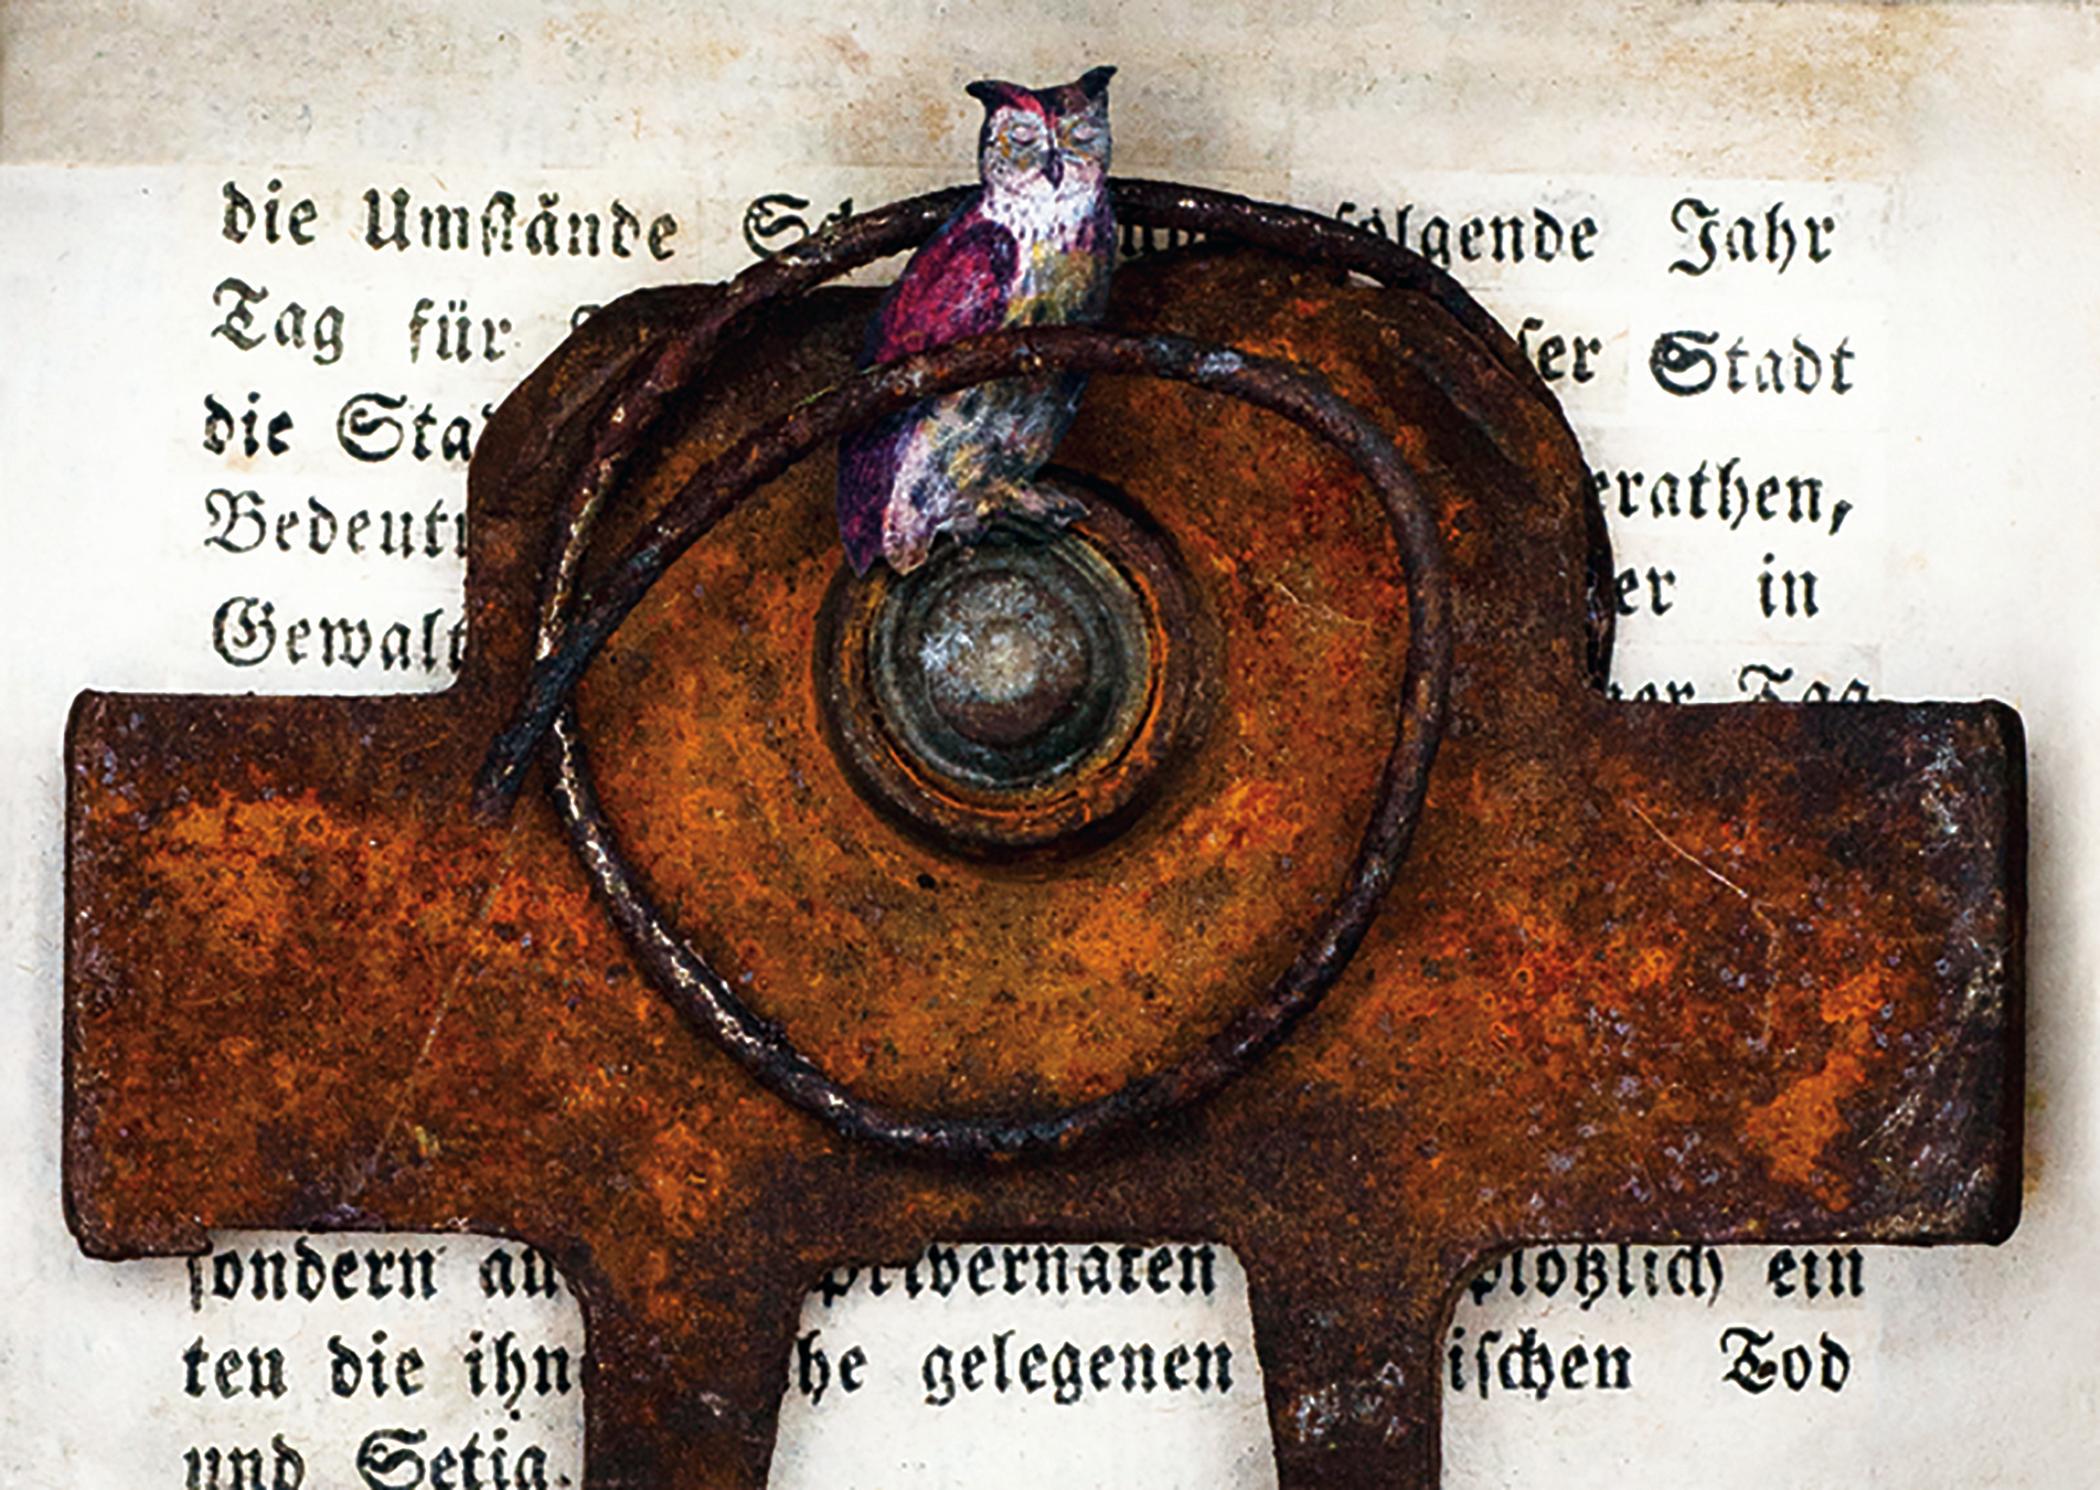 die Umſtände folgende Jahr
Tag für ſer Stadt
die Sta
Bedeut erathen,
Gewalt er in
Tag
ſondern au privernaten plötzlich ein
ten die ihn he gelegenen iſchen Tod
und Setia.